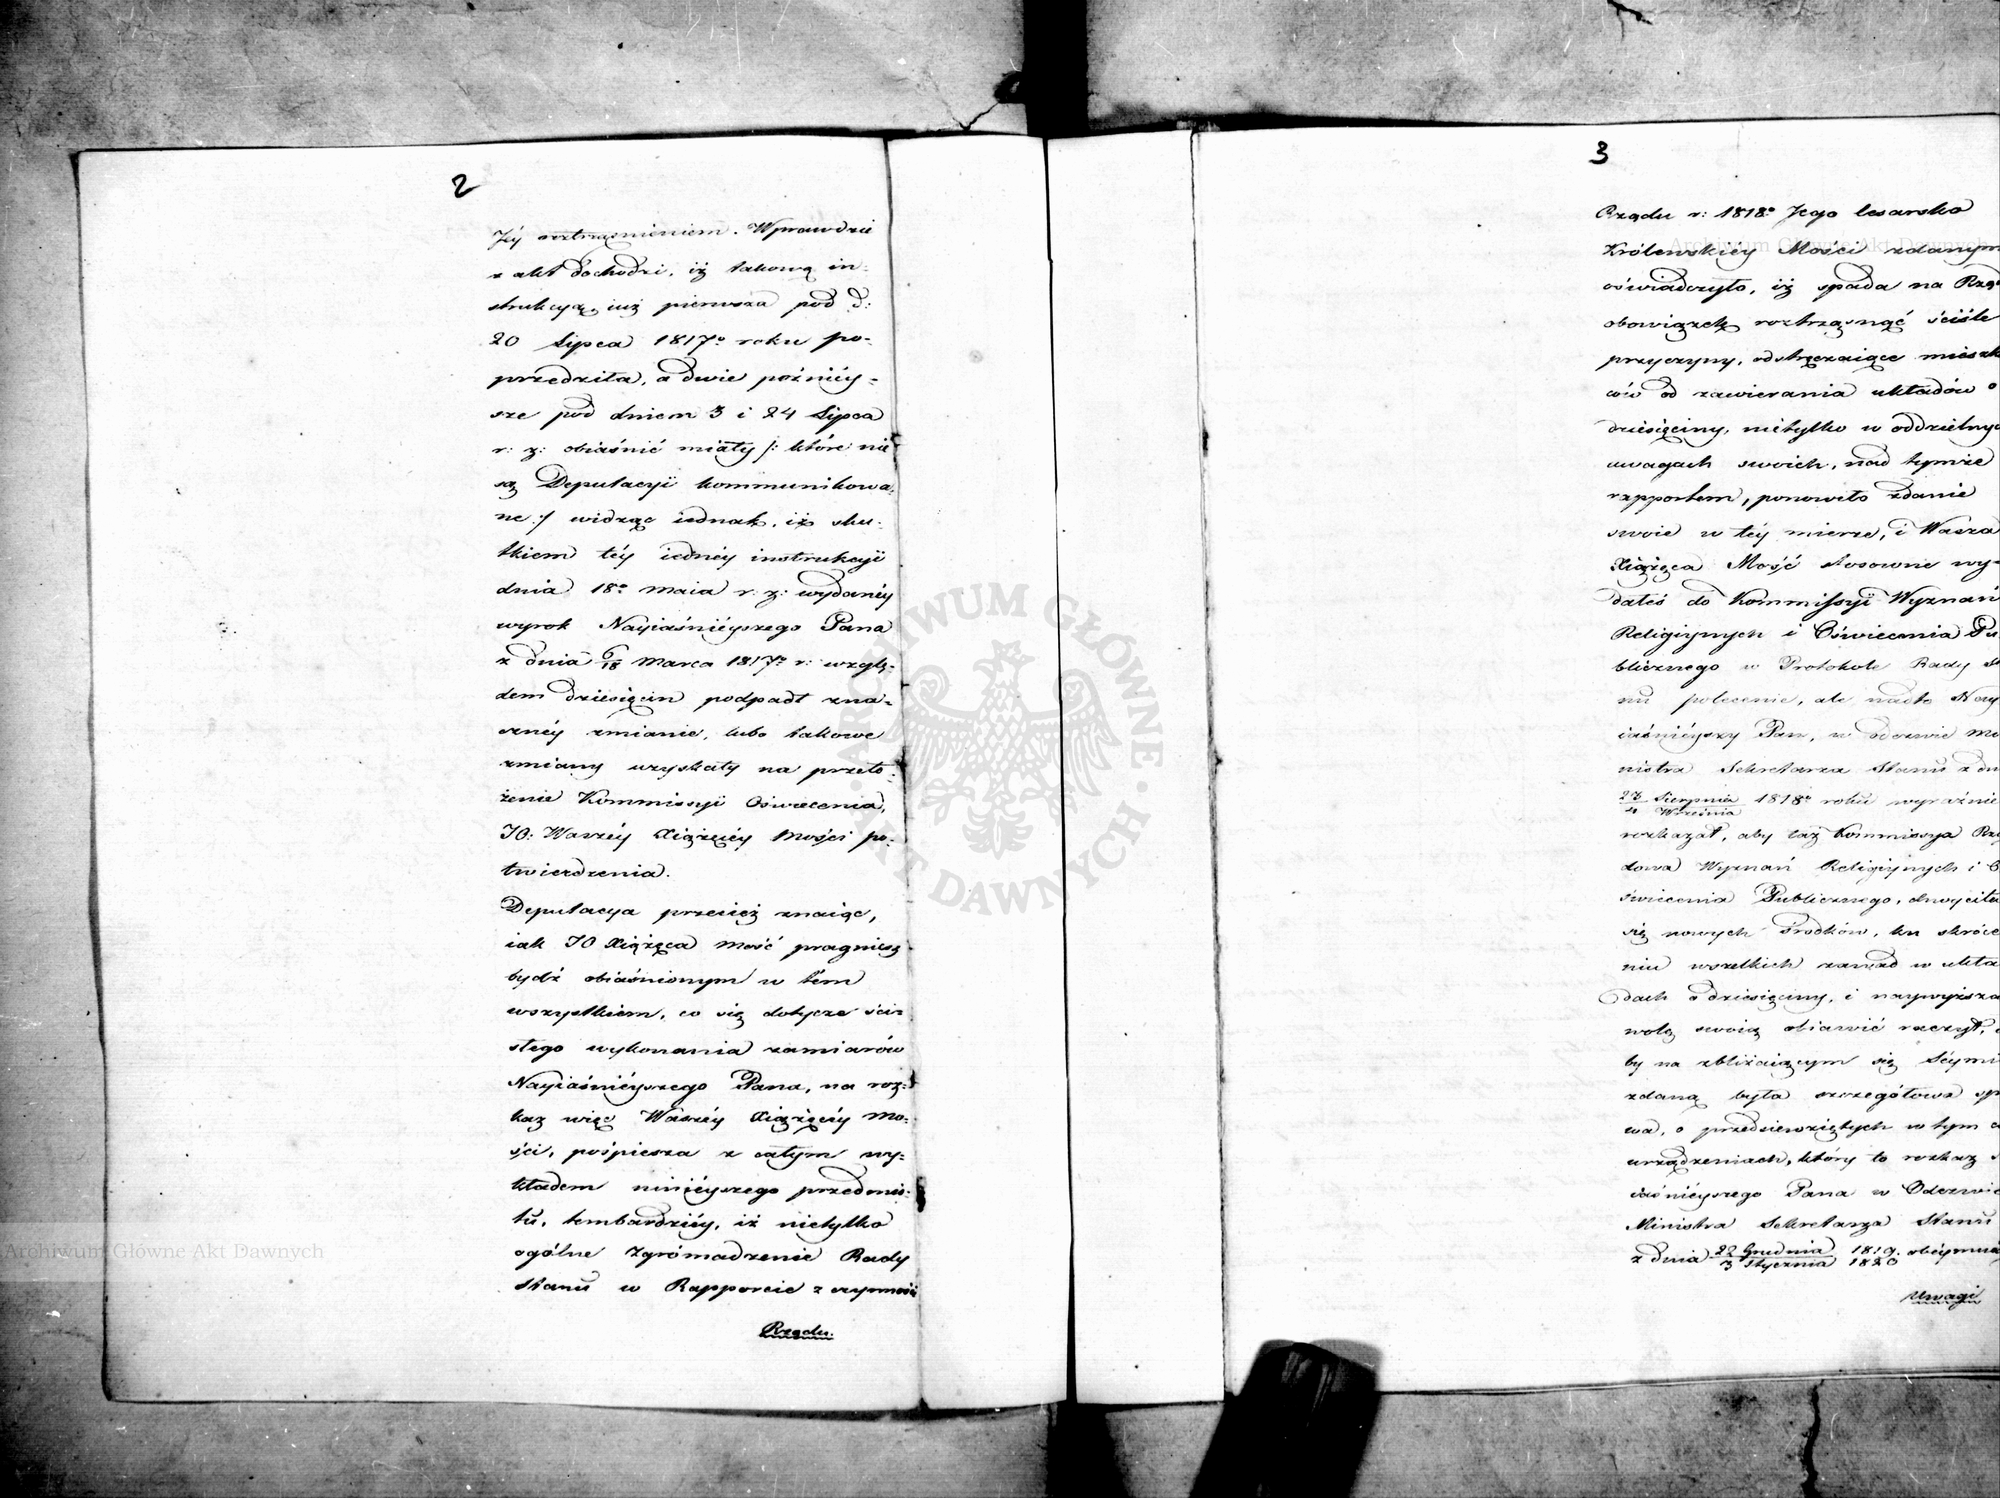 2
Jéy roztrząśnieniem. Wprawdzie
z akt dochodzi, iż takową in-
strukcyą, iuż pierwsza pod d:
20 Lipca 1817º roku po-
przedziła, a dwie późniéy-
sze pod dniem 3 i 24 Lipca
r: z: obiaśnić miały /: które nie
są Deputacyi kommunikowa-
ne :/ widząc iednak, iż sku-
tkiem téy iednéy instrukcyi
dnia 18º Maia r: z: wydanéy
wyrok Nayiaśniéyszego Pana
z dnia 6/18 Marca 1817º r: wzglę-
dem dziesięcin podpadł zna-
cznéy zmianie, lubo takowe
zmiany uzyskały na przeło-
żenie Kommissyi Oświecenia,
JO: Waszéy Xiążęcéy Mości po-
twierdzenia.
Deputacya przecięż znaiąc,
iak JO Xiążęca Mość pragniesz
bydź obiaśnionym w tém
wszystkiem, co się dotycze ści-
słego wykonania zamiarów
Nayiaśniéyszego Pana, na roz-
kaz więc Waszéy Xiążęcéy Mo-
ści, pośpiesza z całym wy-
kładem ninieyszego przedmio-
tu, tembardziéy, iż nietylko
ogólne Zgromadzenie Rady
Stanu w Rapporcie z czynności
Rządu.
3
Rządu r: 1818º Jego Cesarsko
Królewskiéy Mości zdanym
oświadczyło, iż spada na Rzą
obowiązek roztrząsnąć ściśle
przyczyny, odstręczaiące mieszk
ców od zawierania układów o
dziesięciny, nietylko w oddzielnyc
uwagach swoich, nad tymże
rapportem, ponowiło zdanie
swoie w téy mierze, i Wasza
Xiążęca Mość stosowne wy-
dałeś do Kommissyi Wyznań
Religiynych i Oświecenia Pu
blicznego w Protokole Rady St
nu polecenie, ale nadto Nay
iaśniéyszy Pan, w odezwie Mi
nistra Sekretarza Stanu z dn
23 Sierpnia / 4 Września 1818º roku wyraźnie
rozkazał, aby taż Kommissya Rzą
dowa Wyznań Religiynych i O
świecenia Publicznego, chwyciła
się nowych środków, ku skróce
niu wszelkich zawad w ukła
dach o dziesięciny, i naywyższą
wolę swoią obiawić raczył, a
by na zbliżaiącym się Séymi
zdaną była szczegółowa sp
wa, o przedsiewziętych w tym c
urządzeniach, który to rozkaz
iaśniéyszego Pana w Odezwie
Ministra Sekretarza Stanu
z dnia 22 Grudnia 1819. / 3 Stycznia 1820 obéymuią
Uwagi
ARCHIWUM GŁÓWNE AKT DAWNYCH
Archiwum Główne Akt Dawnych
Archiwum Główne Akt Dawnych